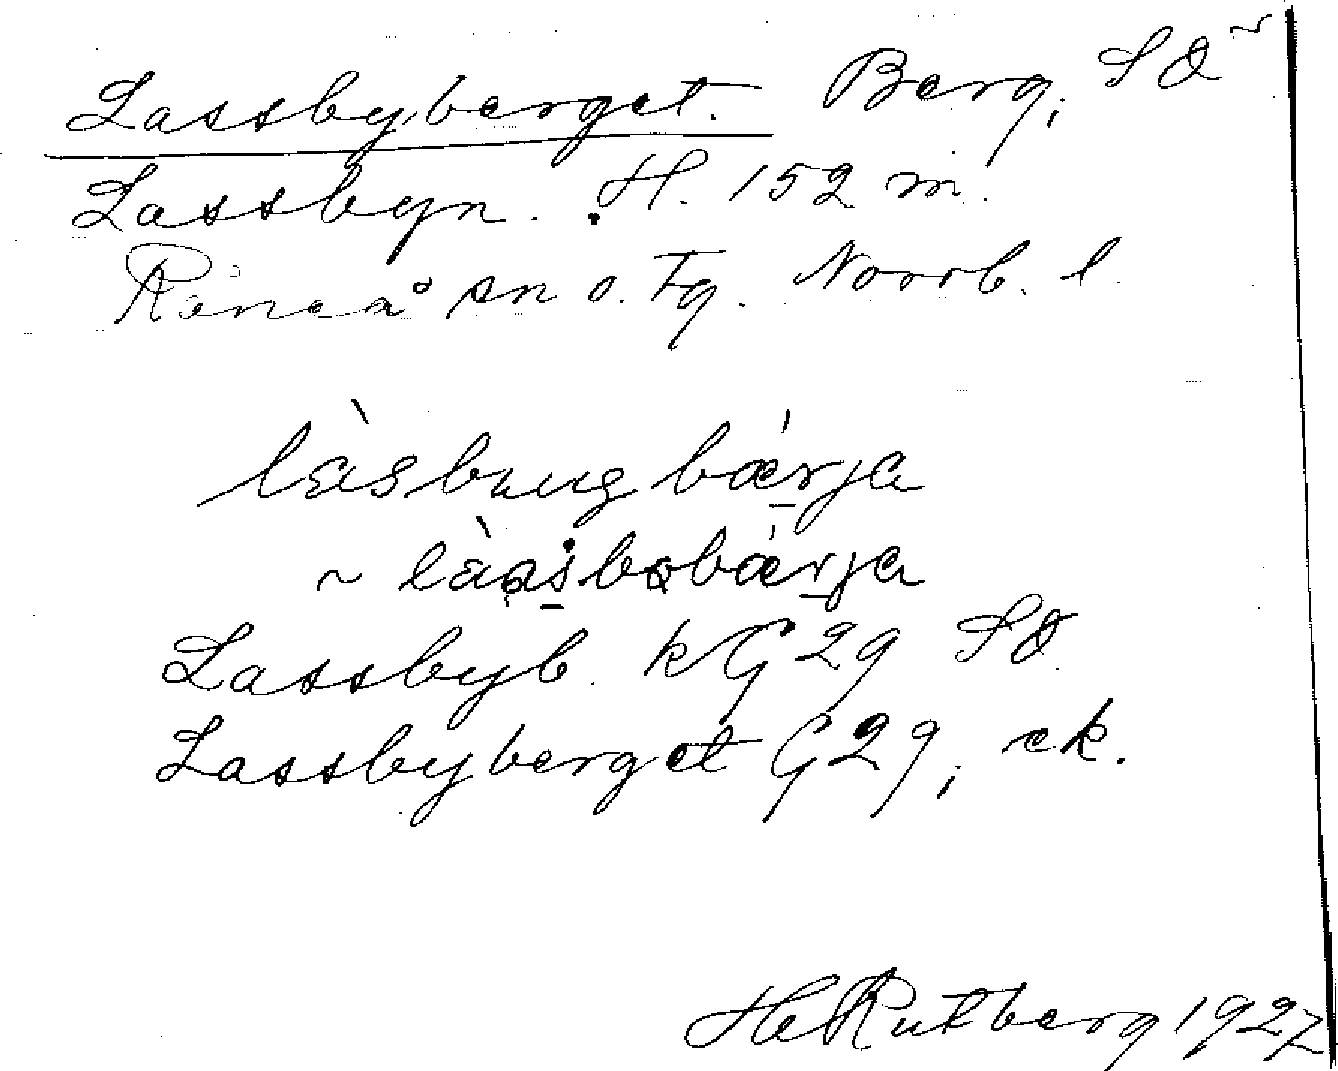 Lassbyberget. Berg, SO ~
Lassbyn. H. 152 m.
Råneå sn o. Tg. Norrb. l.
bærja
~
Lassbyb. kG29 SO.
Lassbyberget G29; ek.
H Rutberg 1927